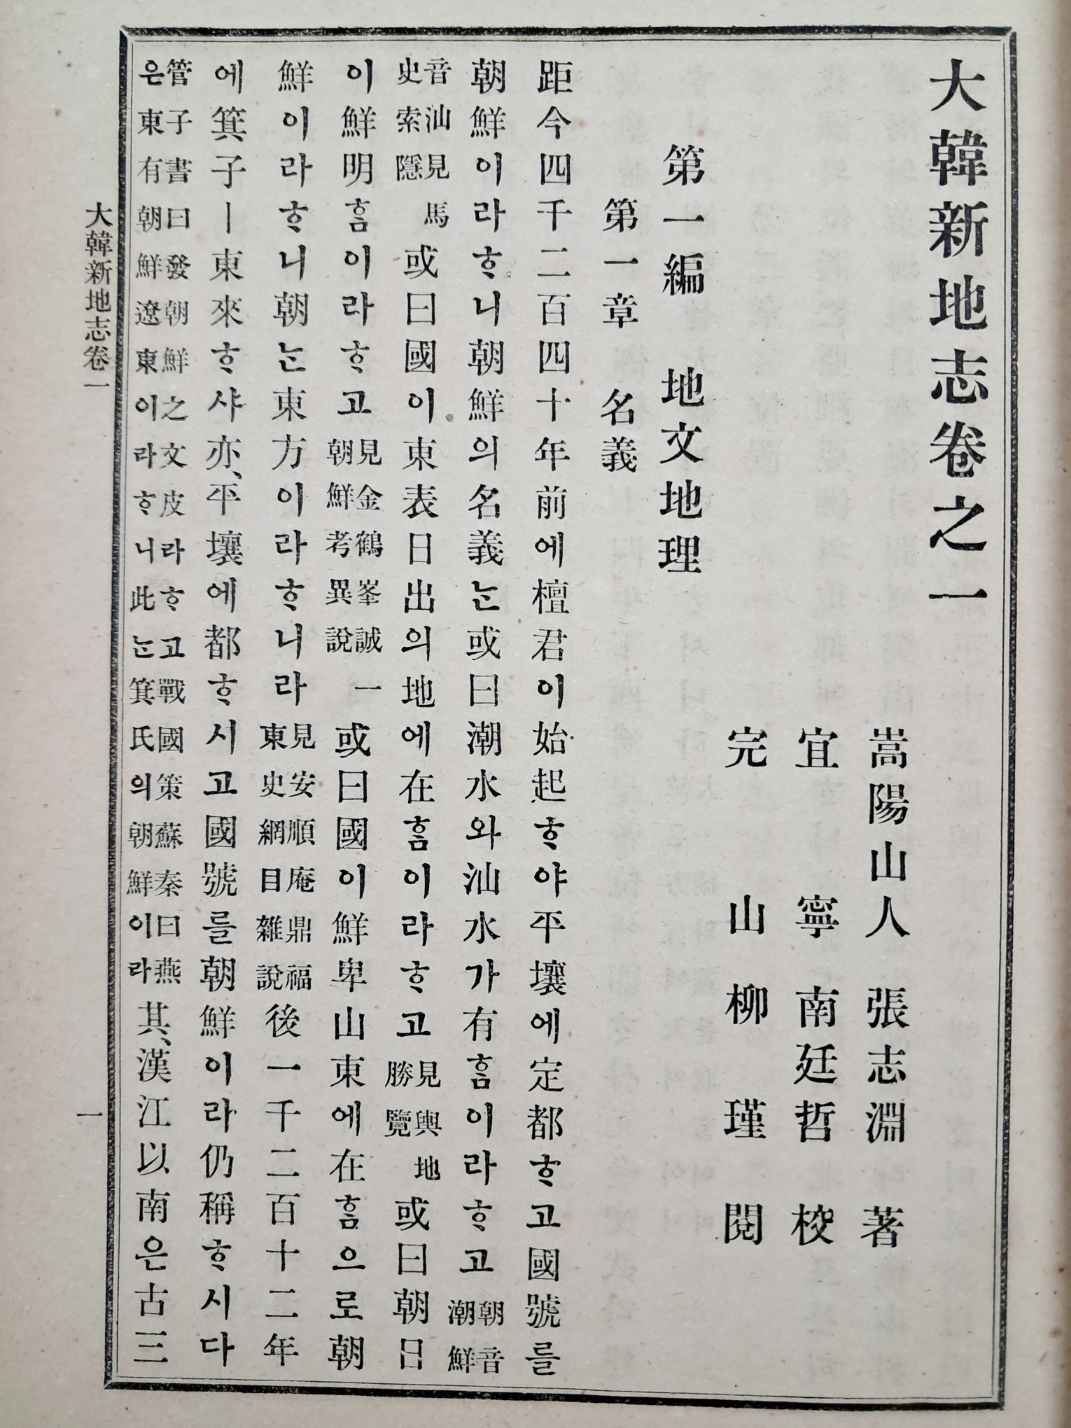 大韓新地志卷之一
嵩陽山人 張志淵 著
宜寧 南廷哲 校
完山 柳瑾 閱
第一編 地文地理
第一章 名義
距今四千二百四十年前에檀君이始起ᄒᆞ야平壤에定都ᄒᆞ고國號를
朝鮮이라ᄒᆞ니朝鮮의名義ᄂᆞᆫ或曰潮水와汕水가有ᄒᆞᆷ이라ᄒᆞ고朝音潮鮮
音汕見馬史索隱或曰國이東表日出의地에在ᄒᆞᆷ이라ᄒᆞ고見輿地勝覽或曰朝日
이鮮明ᄒᆞᆷ이라ᄒᆞ고見金鶴峯誠一朝鮮考異說或曰國이鮮卑山東에在ᄒᆞᆷ으로朝
鮮이라ᄒᆞ니朝ᄂᆞᆫ東方이라ᄒᆞ니라見安順庵鼎福東史綱目雜說後一千二百十二年
에箕子ㅣ東來ᄒᆞ샤亦、平壤에都ᄒᆞ시고國號를朝鮮이라仍稱ᄒᆞ시다
管子書曰發朝鮮之文皮라ᄒᆞ고戰國策蘇秦曰燕은東有朝鮮遼東이라ᄒᆞ니此ᄂᆞᆫ箕氏의朝鮮이라其、漢江以南은古三
大韓新地志卷一
一